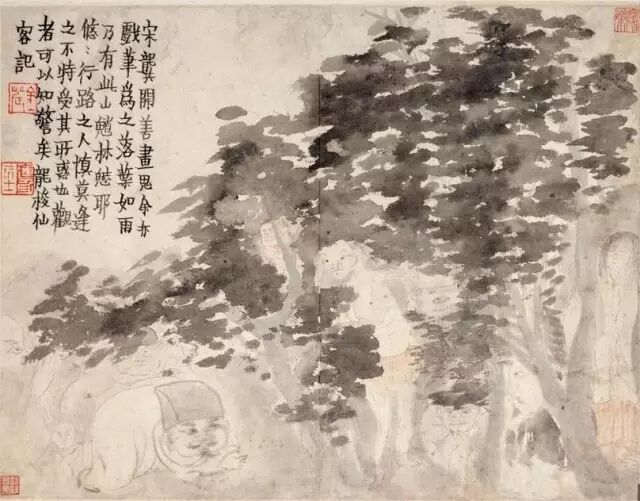 宋龔開善畫鬼余亦
戲筆為之落葉如雨
乃有此山魈林魅耶
悠〻行路之人慎莫逢
之不特受其所惑也觀
者可以知警矣龍梭仙
客記